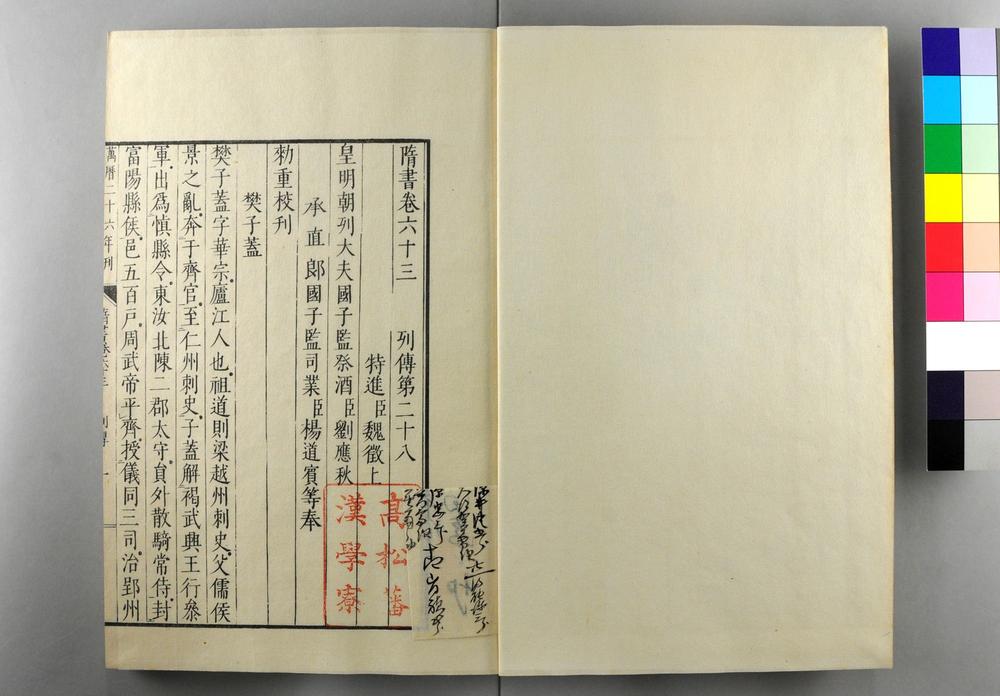 隋書卷六十三　列傳第二十八
特進臣魏徵上
皇明朝列大夫國子監祭酒臣劉應秋
承直郎國子監司業臣楊道賓等奉
勑重校刊
樊子蓋
樊子蓋字華宗廬江人也祖道則梁越州刺史父儒侯
景之亂奔于齊官至仁州刺史子蓋解褐武興王行參
軍出爲愼縣令東汝北陳二郡太守員外散騎常侍封
富陽縣侯邑五百戸周武帝平齊授儀同三司治郢州
萬曆二十六年刊
列傳
一
高松藩
漢學寮